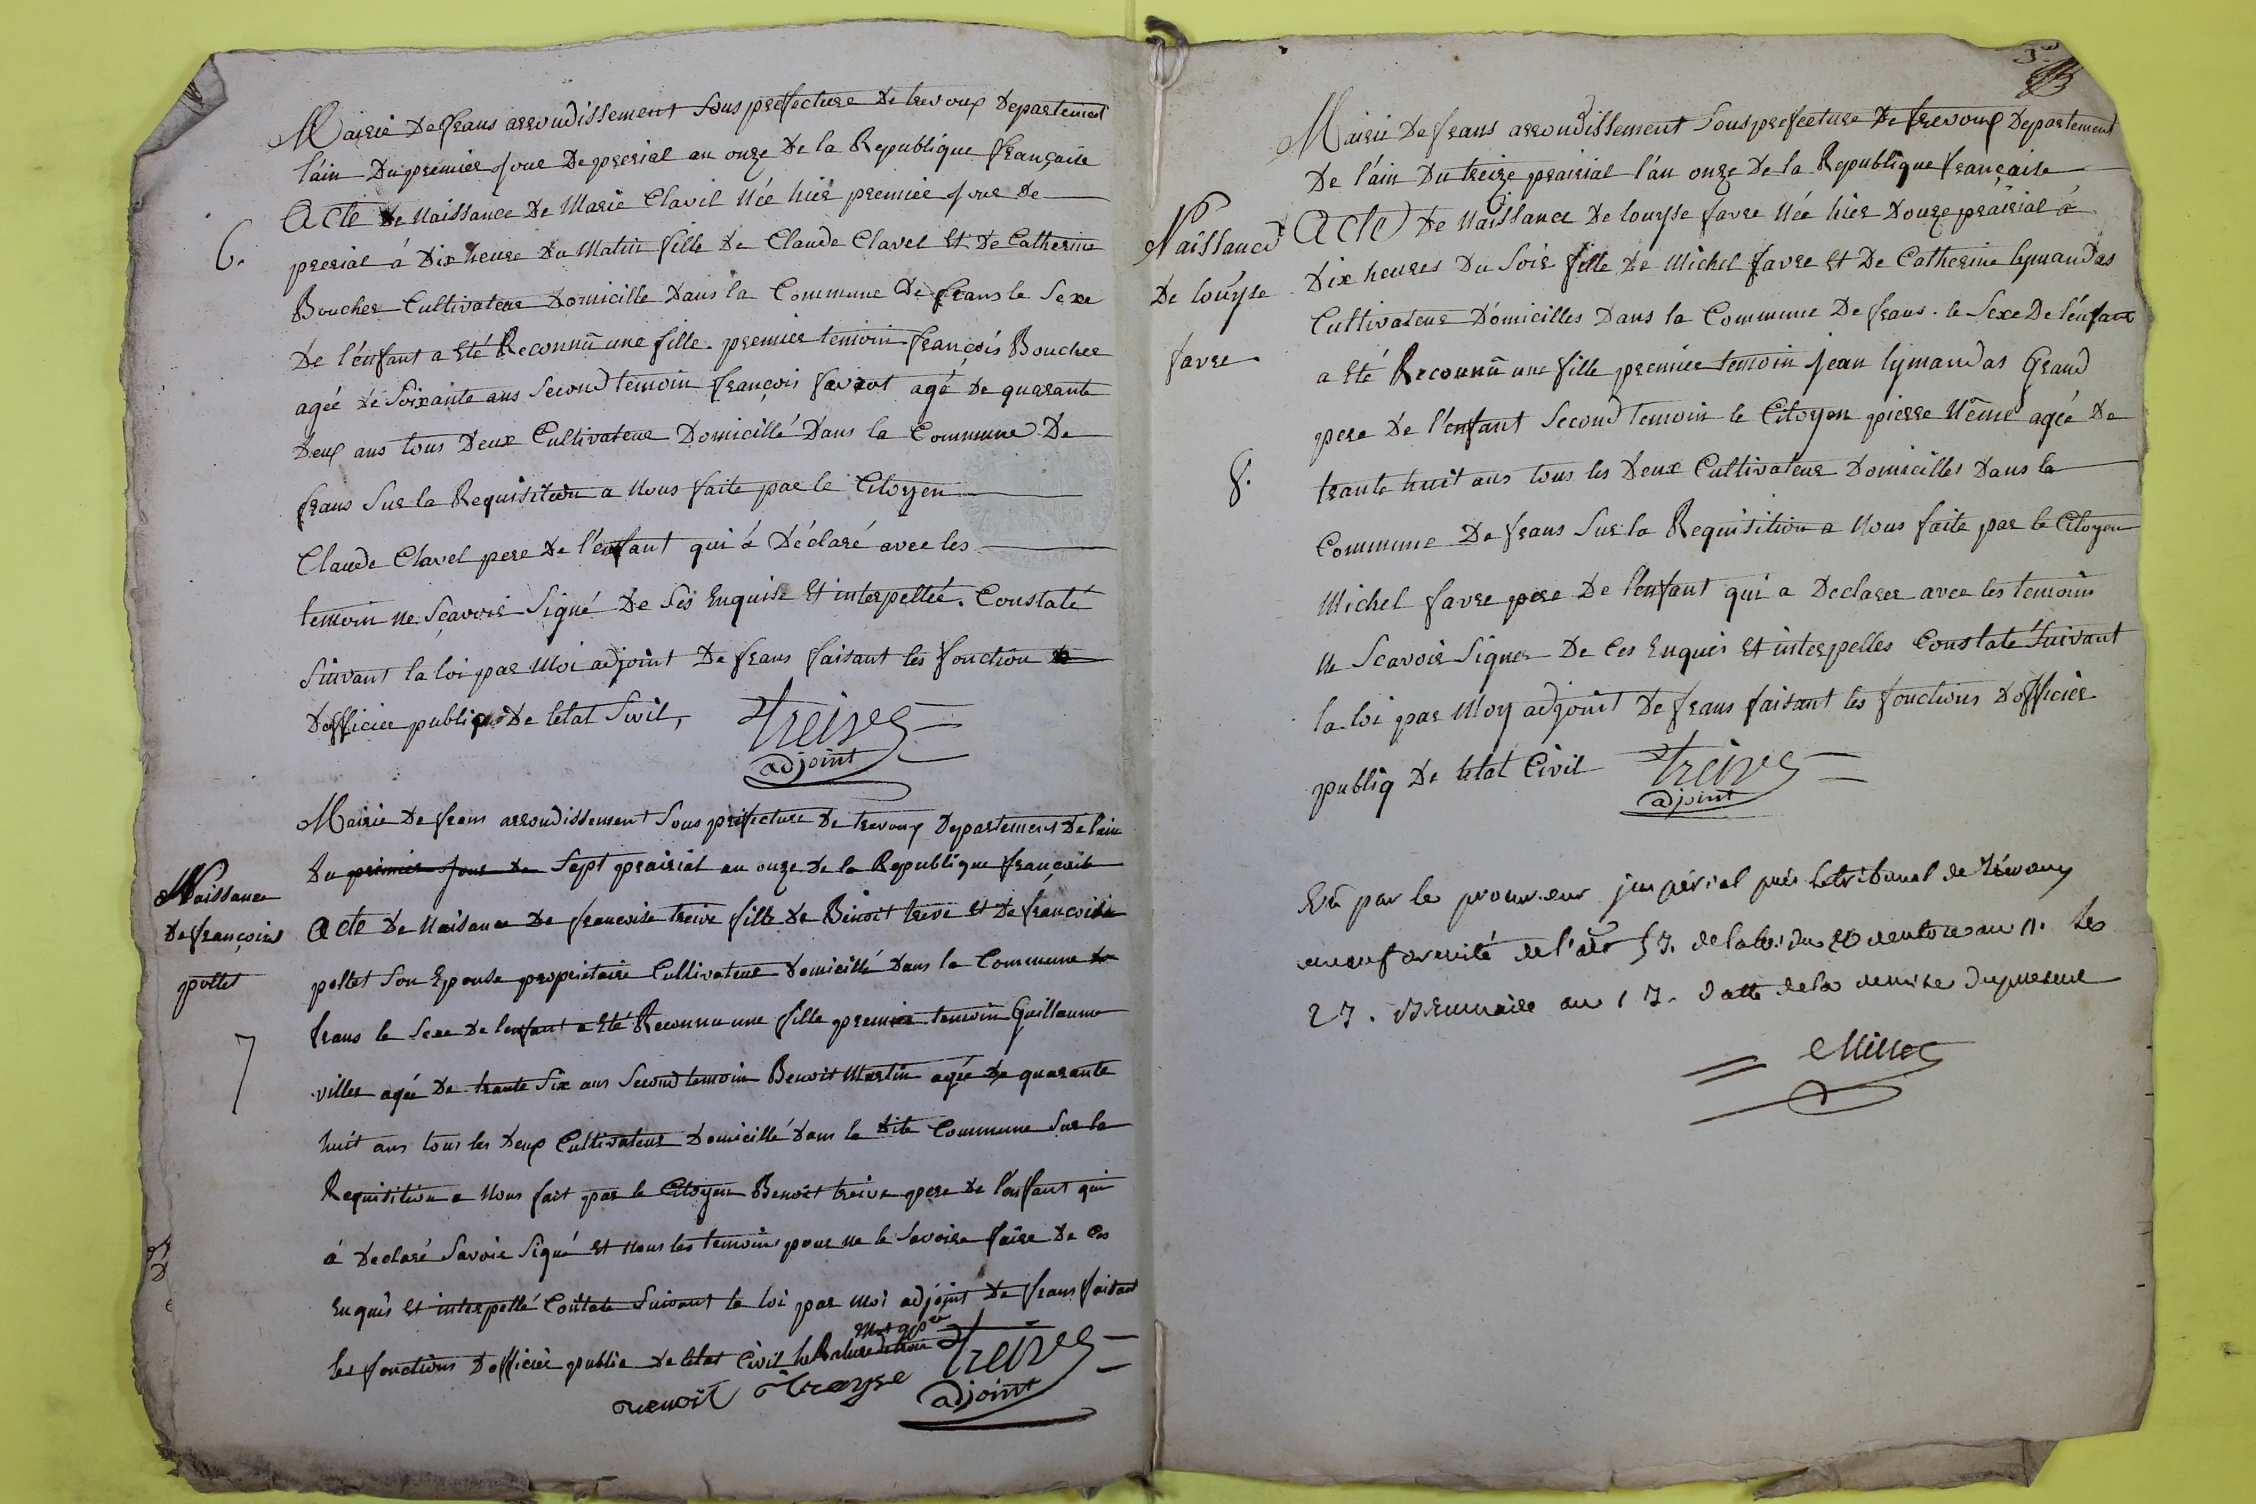 Mairie De frans arrondissement Sous prefecture De trevoux Departement
l'ain Du premier jour De prerial an onze De la Republique française
6.
Acte De Naissance De Marie Clavil Née hier premier jour de
prerial á Dix heure Du Matin fille De Claude Clavel Et De Catherine
Boucher Cultivateur Domicille Dans la Commune De frans le Sexe
De l'énfant a Eté Reconnü une fille. premier temoin françois Boucher
ageé de Soixante ans Second temoin françois favrot agé De quarante
Deux ans tous Deux Cultivateur Domicillé Dans la Commune De
frans Sur la Requisition a Nous faite par le Citoyen
Claude Clavel pere De l'énfant qui á Déclaré avec les
temoin ne Sçavoir Signé De Ses Enquise Et interpelleé. Constaté
Suivant la loi par Moi adjoint De frans faisant les fonction de
Dofficier publique De letat Sivil,
treive
adjoint
Mairie De frans arrondissement Sous préfecture De trevoux Departement De l'ain
Du premier Jour De Sept prairial an onze De la Republique françoise
Naissance
De françoise
pollet
7
Acte De Naisance De francoise treive fille De Binoit treve Et De francoise
pollet Son Epouse proprietaire Cultivateur Domicillé Dans la Commune De
frans le Sexe De lenfant a Eté Reconnu une fille premier temoin Guillaume
villet ageé De trante Six ans Second temoin Benoit Martin ageé De quarante
huit ans tous les Deux Cultivateur Domicillé Dans la Dite Commune Sur la
Requisition a Nous fait par le Citoyen Benoit treive pere De l'énfant qui
á Declaré Savoir Signé Et Nous les temoin pour ne le Savoire faire De Ces
Enquis Et interpellé Contate Suivant la loi par Moi adjoint De frans faisant
les fonctions Dofficier public De letat Civil la Rature
benoit treyve
treive
adjoint
3e
Mairie De frans arrondissement Sous prefecture De trevoux Departement
De l'ain Du treize prairial l'an onze De la Republique française
Naissance
De louyse
favre
8.
Acte De Naissance De louyse favre Née hier Douze prairial á
Dix heures Du Soir fille De Michel favre Et De Catherine lymandas
Cultivateur Domicilles Dans la Commune De frans. le Sexe De l'énfant
a Eté Reconnü une fille premier temoin jean lymandas Grand
pere De l'énfant Second temoin le Citoyen pierre Néme ageé De
trante huit ans tous les Deux Cultivateur Domicilles Dans la
Commune De frans Sur la Requisition a Nous faite par le Citoyen
Michel favre pere De l'énfant qui a Declarer avec les temoins
ne Scavoir Signer De Ces Enquis Et interpelles Constaté Suivant
la loi par Moy adjoint De frans faisant les fonctions Dofficier
publiq De létat Civil
treive
adjoint
Vû par le procureur jmpérial près le tribunal de Trévoux
de l'art 57. de la loi du 20 ventose an 11. le
27. Brumaire an 13. datte de la remise du present
Millet